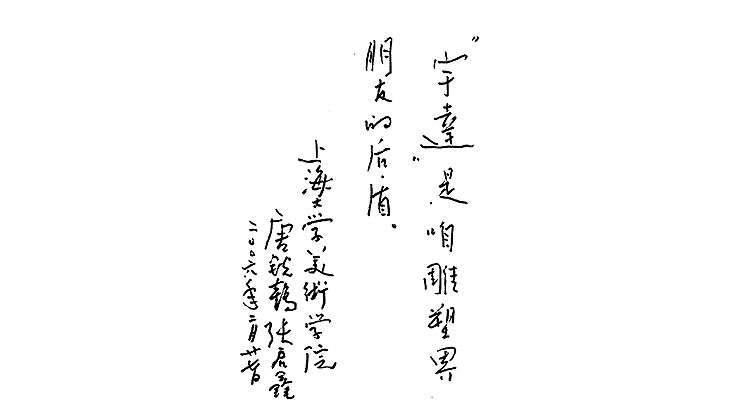 "宇達"是咱雕塑界
朋友的后盾。
上海大学美術学院
唐锐鹤 张
二〇〇六年二月廿